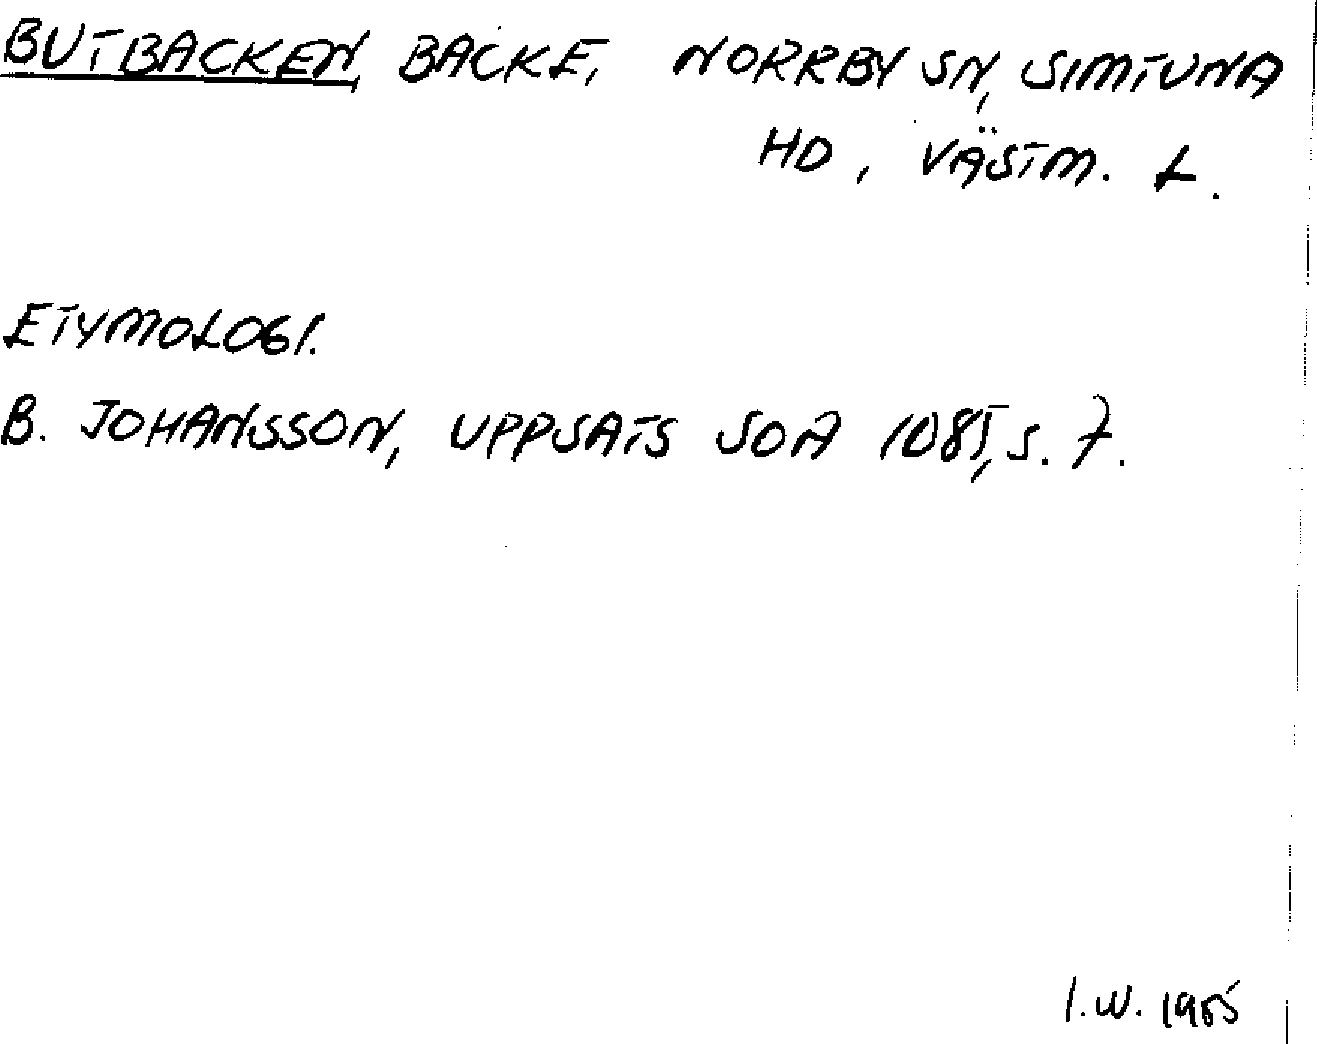 BUTBACKEN, BACKE, NORRBY SN, SIMTUNA
HD, VÄSTM. L.
ETYMOLOGI.
B. JOHANSSON, UPPSATS SOA 1085, s. 7.
I.W. 1985